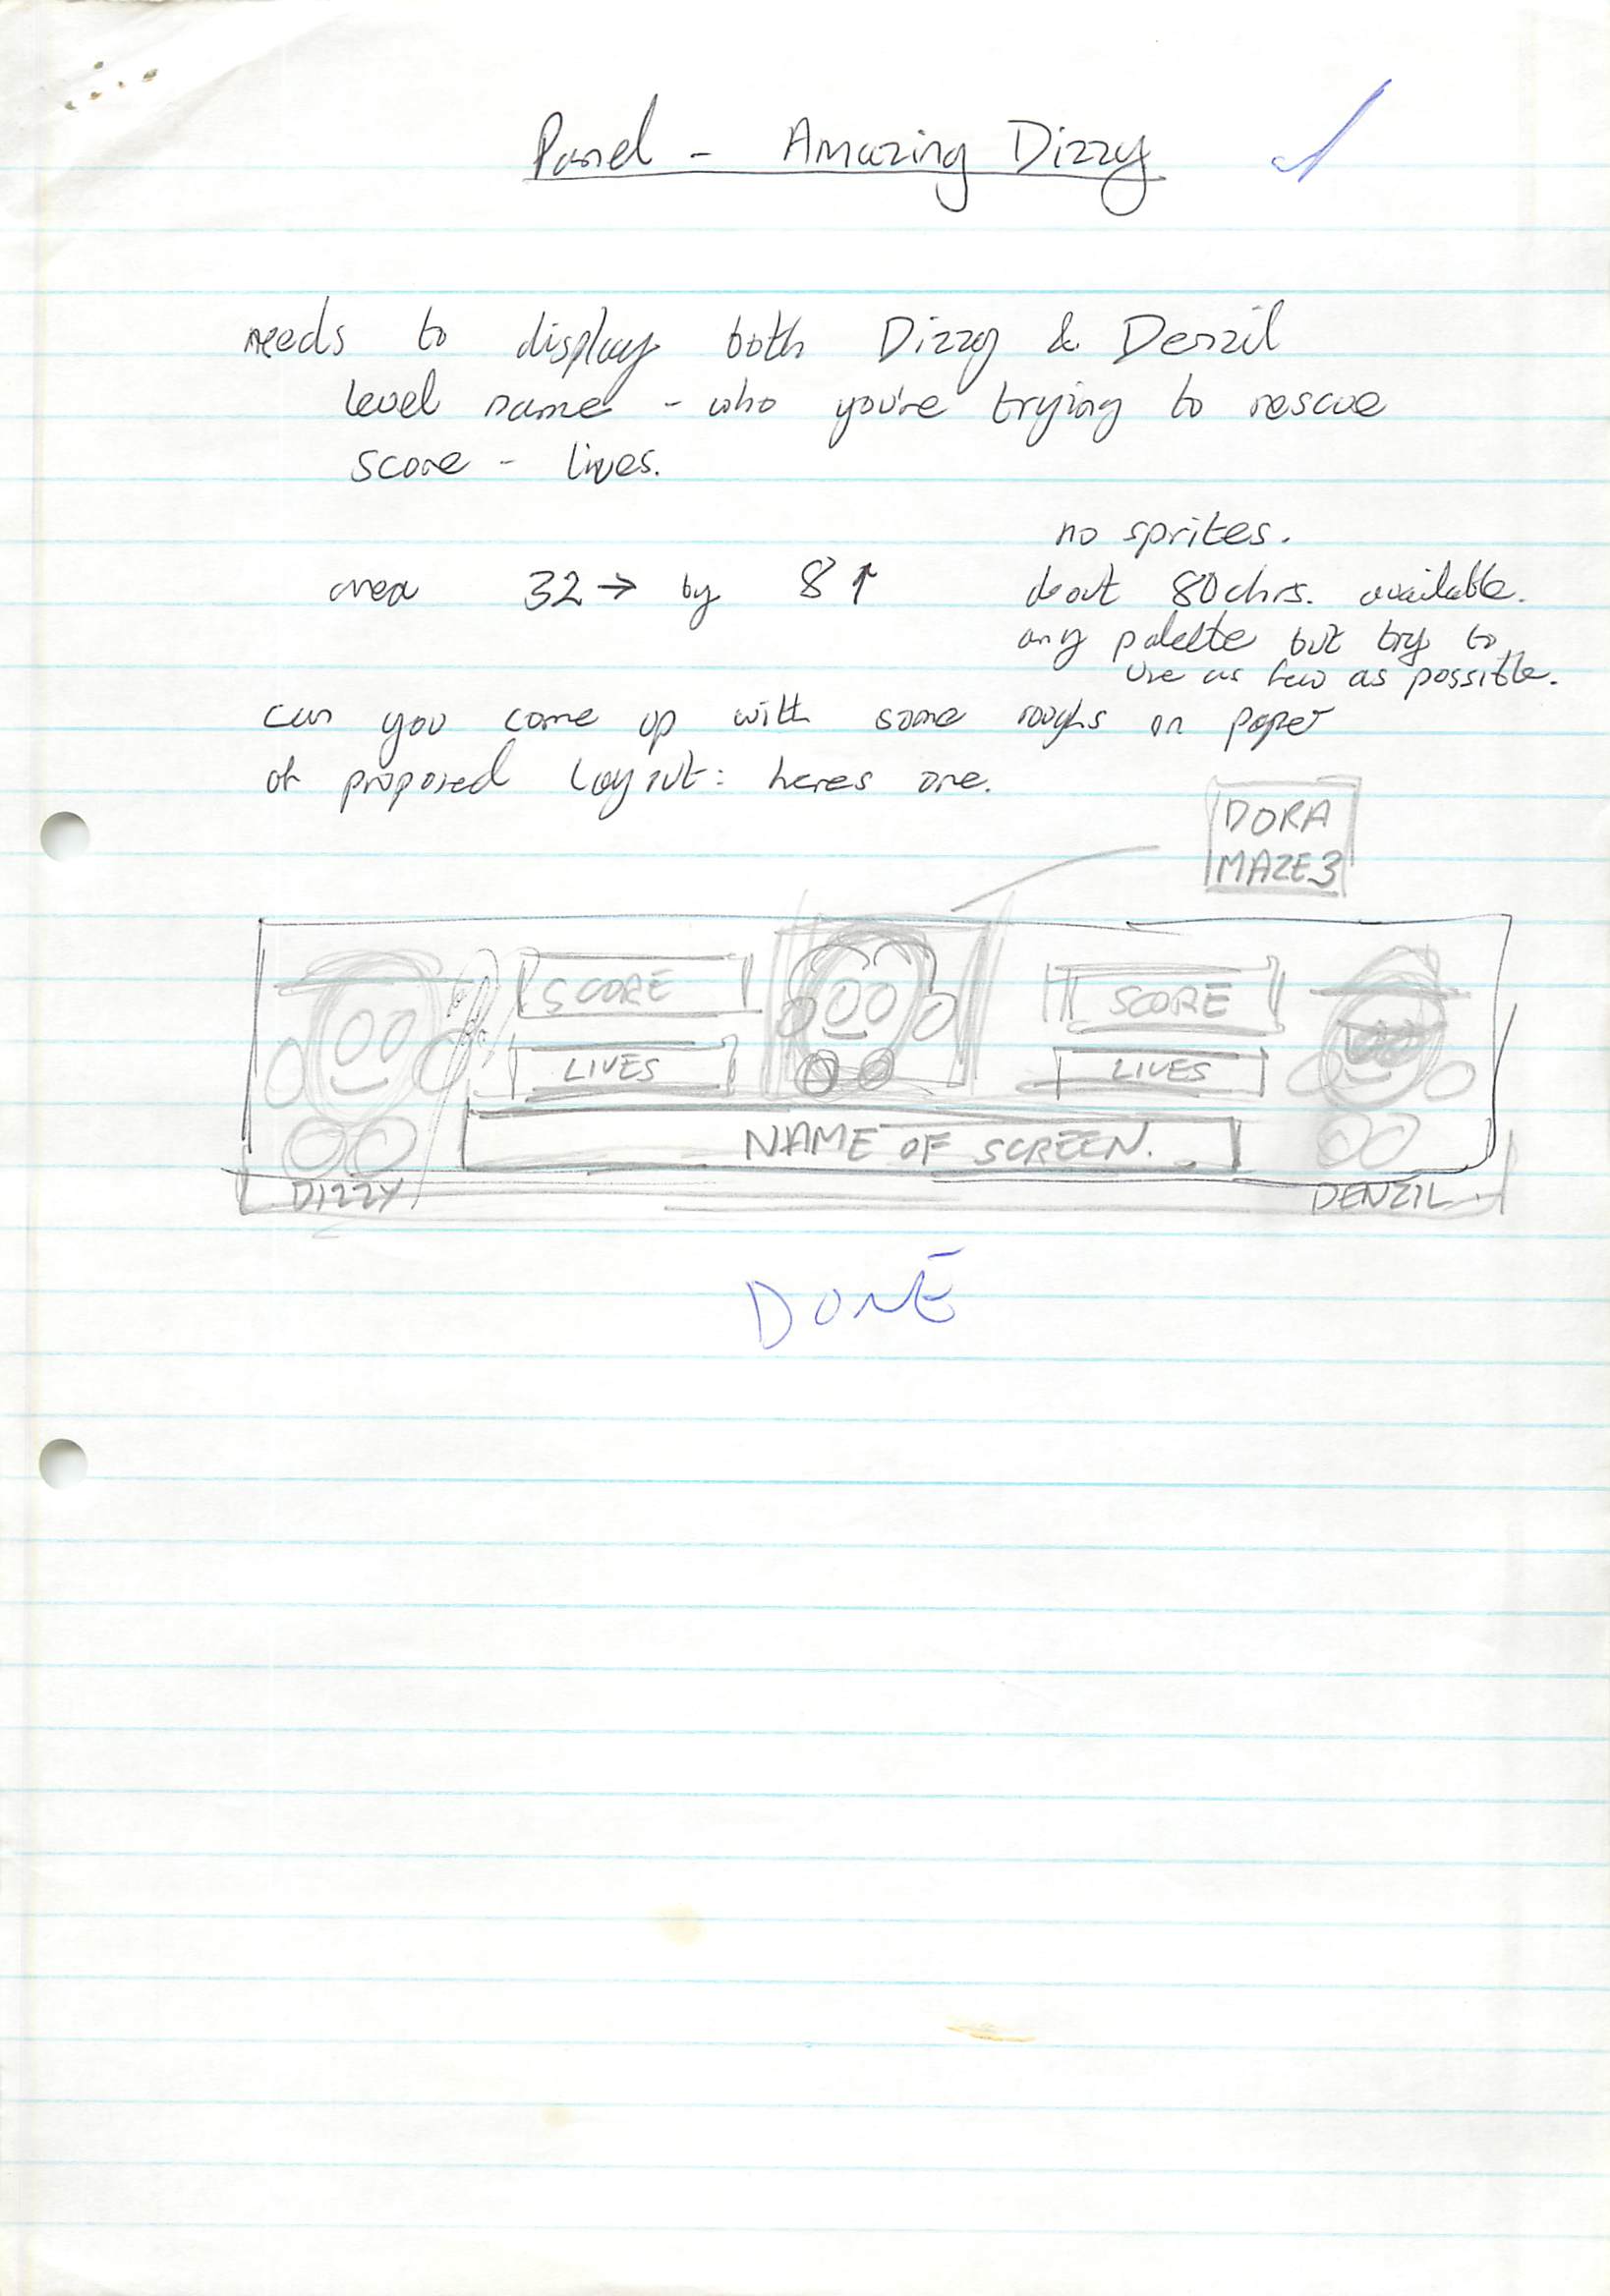 Panel - Amazing Dizzy
needs to display both Dizzy & Denzil
level name - who you're trying to rescue
score - lives.
no sprites.
area 32 → by 8 ↑
about 80 chrs. available.
any palette but try to
use as few as possible.
can you come up with some roughs on paper
of proposed layout: heres one.
DORA
MAZE 3
SCORE
SCORE
LIVES
LIVES
NAME OF SCREEN.
DIZZY
DENZIL
DONE